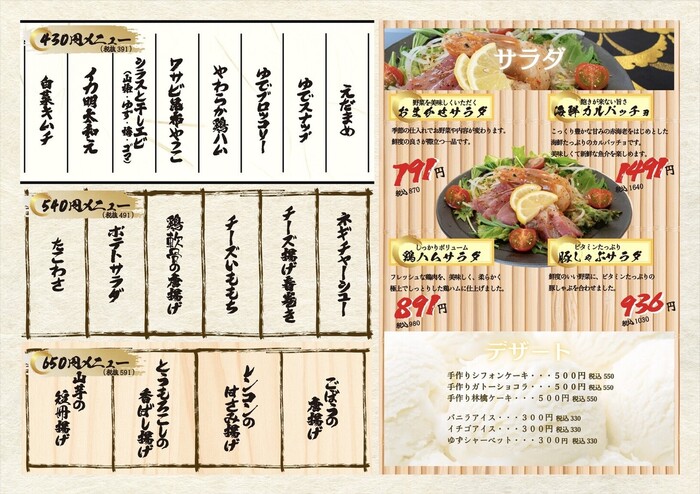 430円メニュー
(税抜391)
えだまめ
ゆでスナップ
ゆでブロッコリー
やわらか鶏ハム
ワサビ昆布やっこ
シラスと干しエビ
(山椒・ゆず・梅・ゴマ)
イカ明太和え
白菜キムチ
540円メニュー
(税抜491)
ネギチャーシュー
チーズ揚げ春巻き
チーズいももち
鶏軟骨の唐揚げ
ポテトサラダ
たこわさ
650円メニュー
(税抜591)
ごぼうの
唐揚げ
レンコンの
はさみ揚げ
とうもろこしの
香ばし揚げ
山芋の
短冊揚げ
サラダ
野菜を美味しくいただく
おまかせサラダ
季節の仕入れでお野菜や内容が変わります。
鮮度の良さが際立つ一品です。
791円
税込870
飽きが来ない旨さ
海鮮カルパッチョ
こっくり豊かな甘みの赤海老をはじめとした
海鮮たっぷりのカルパッチョです。
美味しくて新鮮な魚介を楽しめます。
1491円
税込1640
しっかりボリューム
鶏ハムサラダ
フレッシュな鶏肉を、美味しく、柔らかく
極上でしっとりした鶏ハムに仕上げました。
891円
税込980
ビタミンたっぷり
豚しゃぶサラダ
鮮度のいい野菜に、ビタミンたっぷりの
豚しゃぶを合わせました。
936円
税込1030
デザート
手作りシフォンケーキ・・・５００円 税込550
手作りガトーショコラ・・・５００円 税込550
手作り林檎ケーキ・・・５００円 税込550
バニラアイス・・・３００円 税込330
イチゴアイス・・・３００円 税込330
ゆずシャーベット・・・３００円 税込330